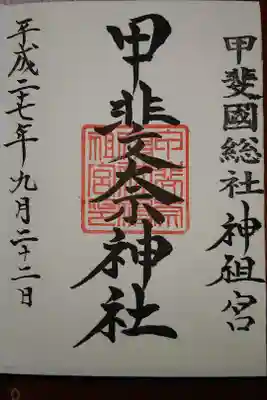 甲斐國総社神祖宮
甲斐奈神社
平成二七年九月二十二日